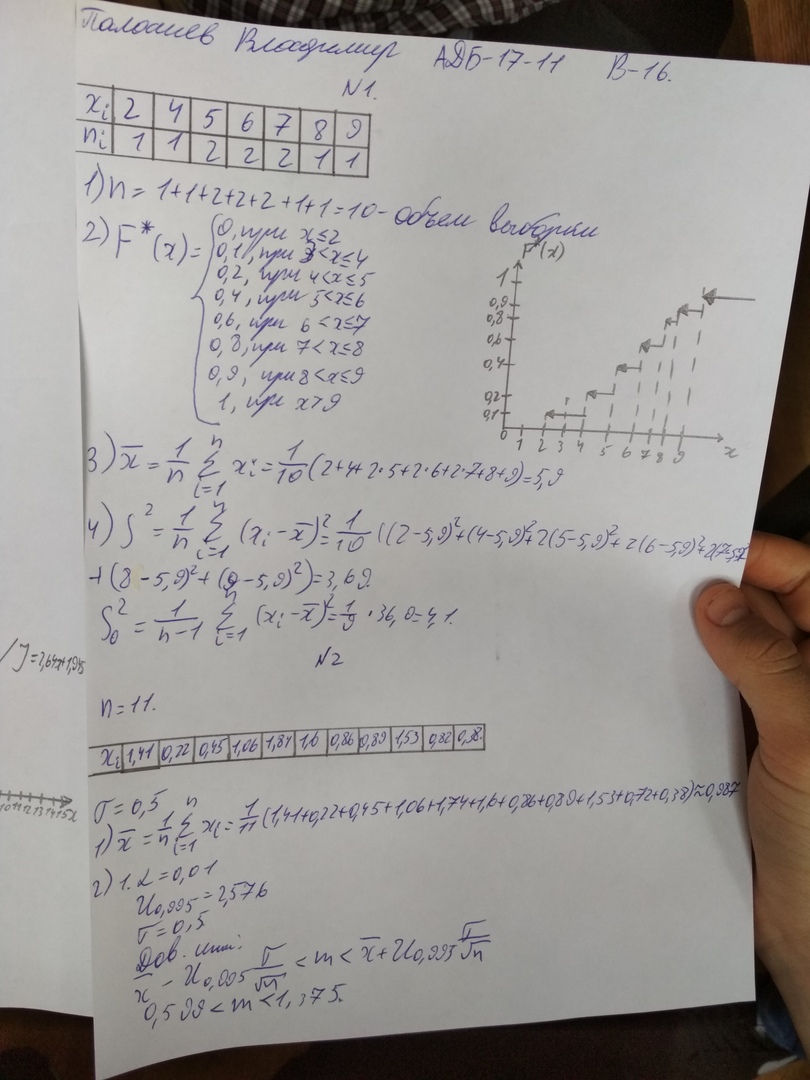 Владимир АДБ-17-11 В-16.
№1.
xi 2 4 5 6 7 8 9
ni 1 1 2 2 2 1 1
1) n = 1+1+2+2+2+1+1=10 - объем выборки
2) F*(x) =
0, при x≤2
0,1, при 3<x≤4
0,2, при 4<x≤5
0,4, при 5<x≤6
0,6, при 6<x≤7
0,8, при 7<x≤8
0,9, при 8<x≤9
1, при x>9
F*(x)
1
0,9
0,8
0,6
0,4
0,2
0,1
0 1 2 3 4 5 6 7 8 9 x
3) x̄ = 1/n Σ(i=1..n) xi = 1/10 (2+4+2·5+2·6+2·7+8+9)=5,9
4) S² = 1/n Σ(i=1..n) (xi-x̄)² = 1/10 ((2-5,9)²+(4-5,9)²+2(5-5,9)²+2(6-5,9)²+2(7-5,9)²
+(8-5,9)²+(9-5,9)²)=3,69.
S₀² = 1/(n-1) Σ(i=1..n) (xi-x̄)² = 1/9 · 36,0=4,1.
№2
n=11.
xi 1,41 0,22 0,45 1,06 1,84 1,6 0,86 0,89 1,53 0,82 0,38
σ=0,5
1) x̄ = 1/n Σ(i=1..n) xi = 1/11 (1,41+0,22+0,45+1,06+1,74+1,6+0,86+0,89+1,53+0,72+0,38)≈0,987
2) 1. α=0,01
U0,995 = 2,576
σ=0,5
Дов. инт:
x̄ - U0,995 σ/√n < m < x̄ + U0,995 σ/√n
0,599 < m < 1,375.
10 11 12 13 14 15 x